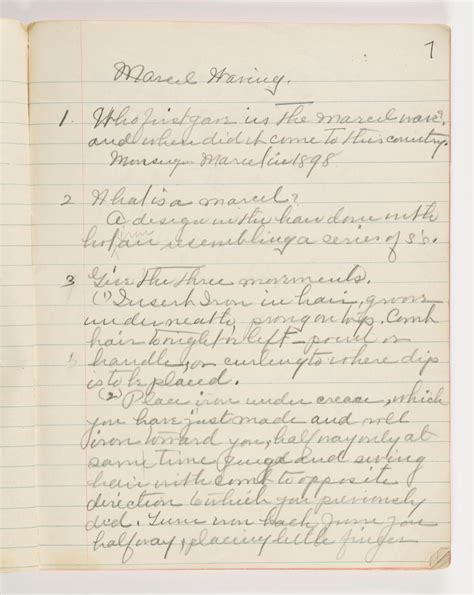 7
Marcel Waving.
1. Who first gave us the marcel wave?
and when did it come to this country.
Monseyur Marcel in 1898
2 What is a marcel?
A design in the hair done with
hot iron resembling a series of s's.
3 Give the three movements.
(1) Insert Iron in hair, groove
underneath, prong on top. Comb
hair to right or left - point or
handle, or curling to where dip
is to be placed.
(2) Place iron under crease, which
you have just made and roll
iron toward you, half way only at
same time and swing
hair with comb to opposite
direction to which you previously
did. Turn iron back from you
halfway, placing little finger